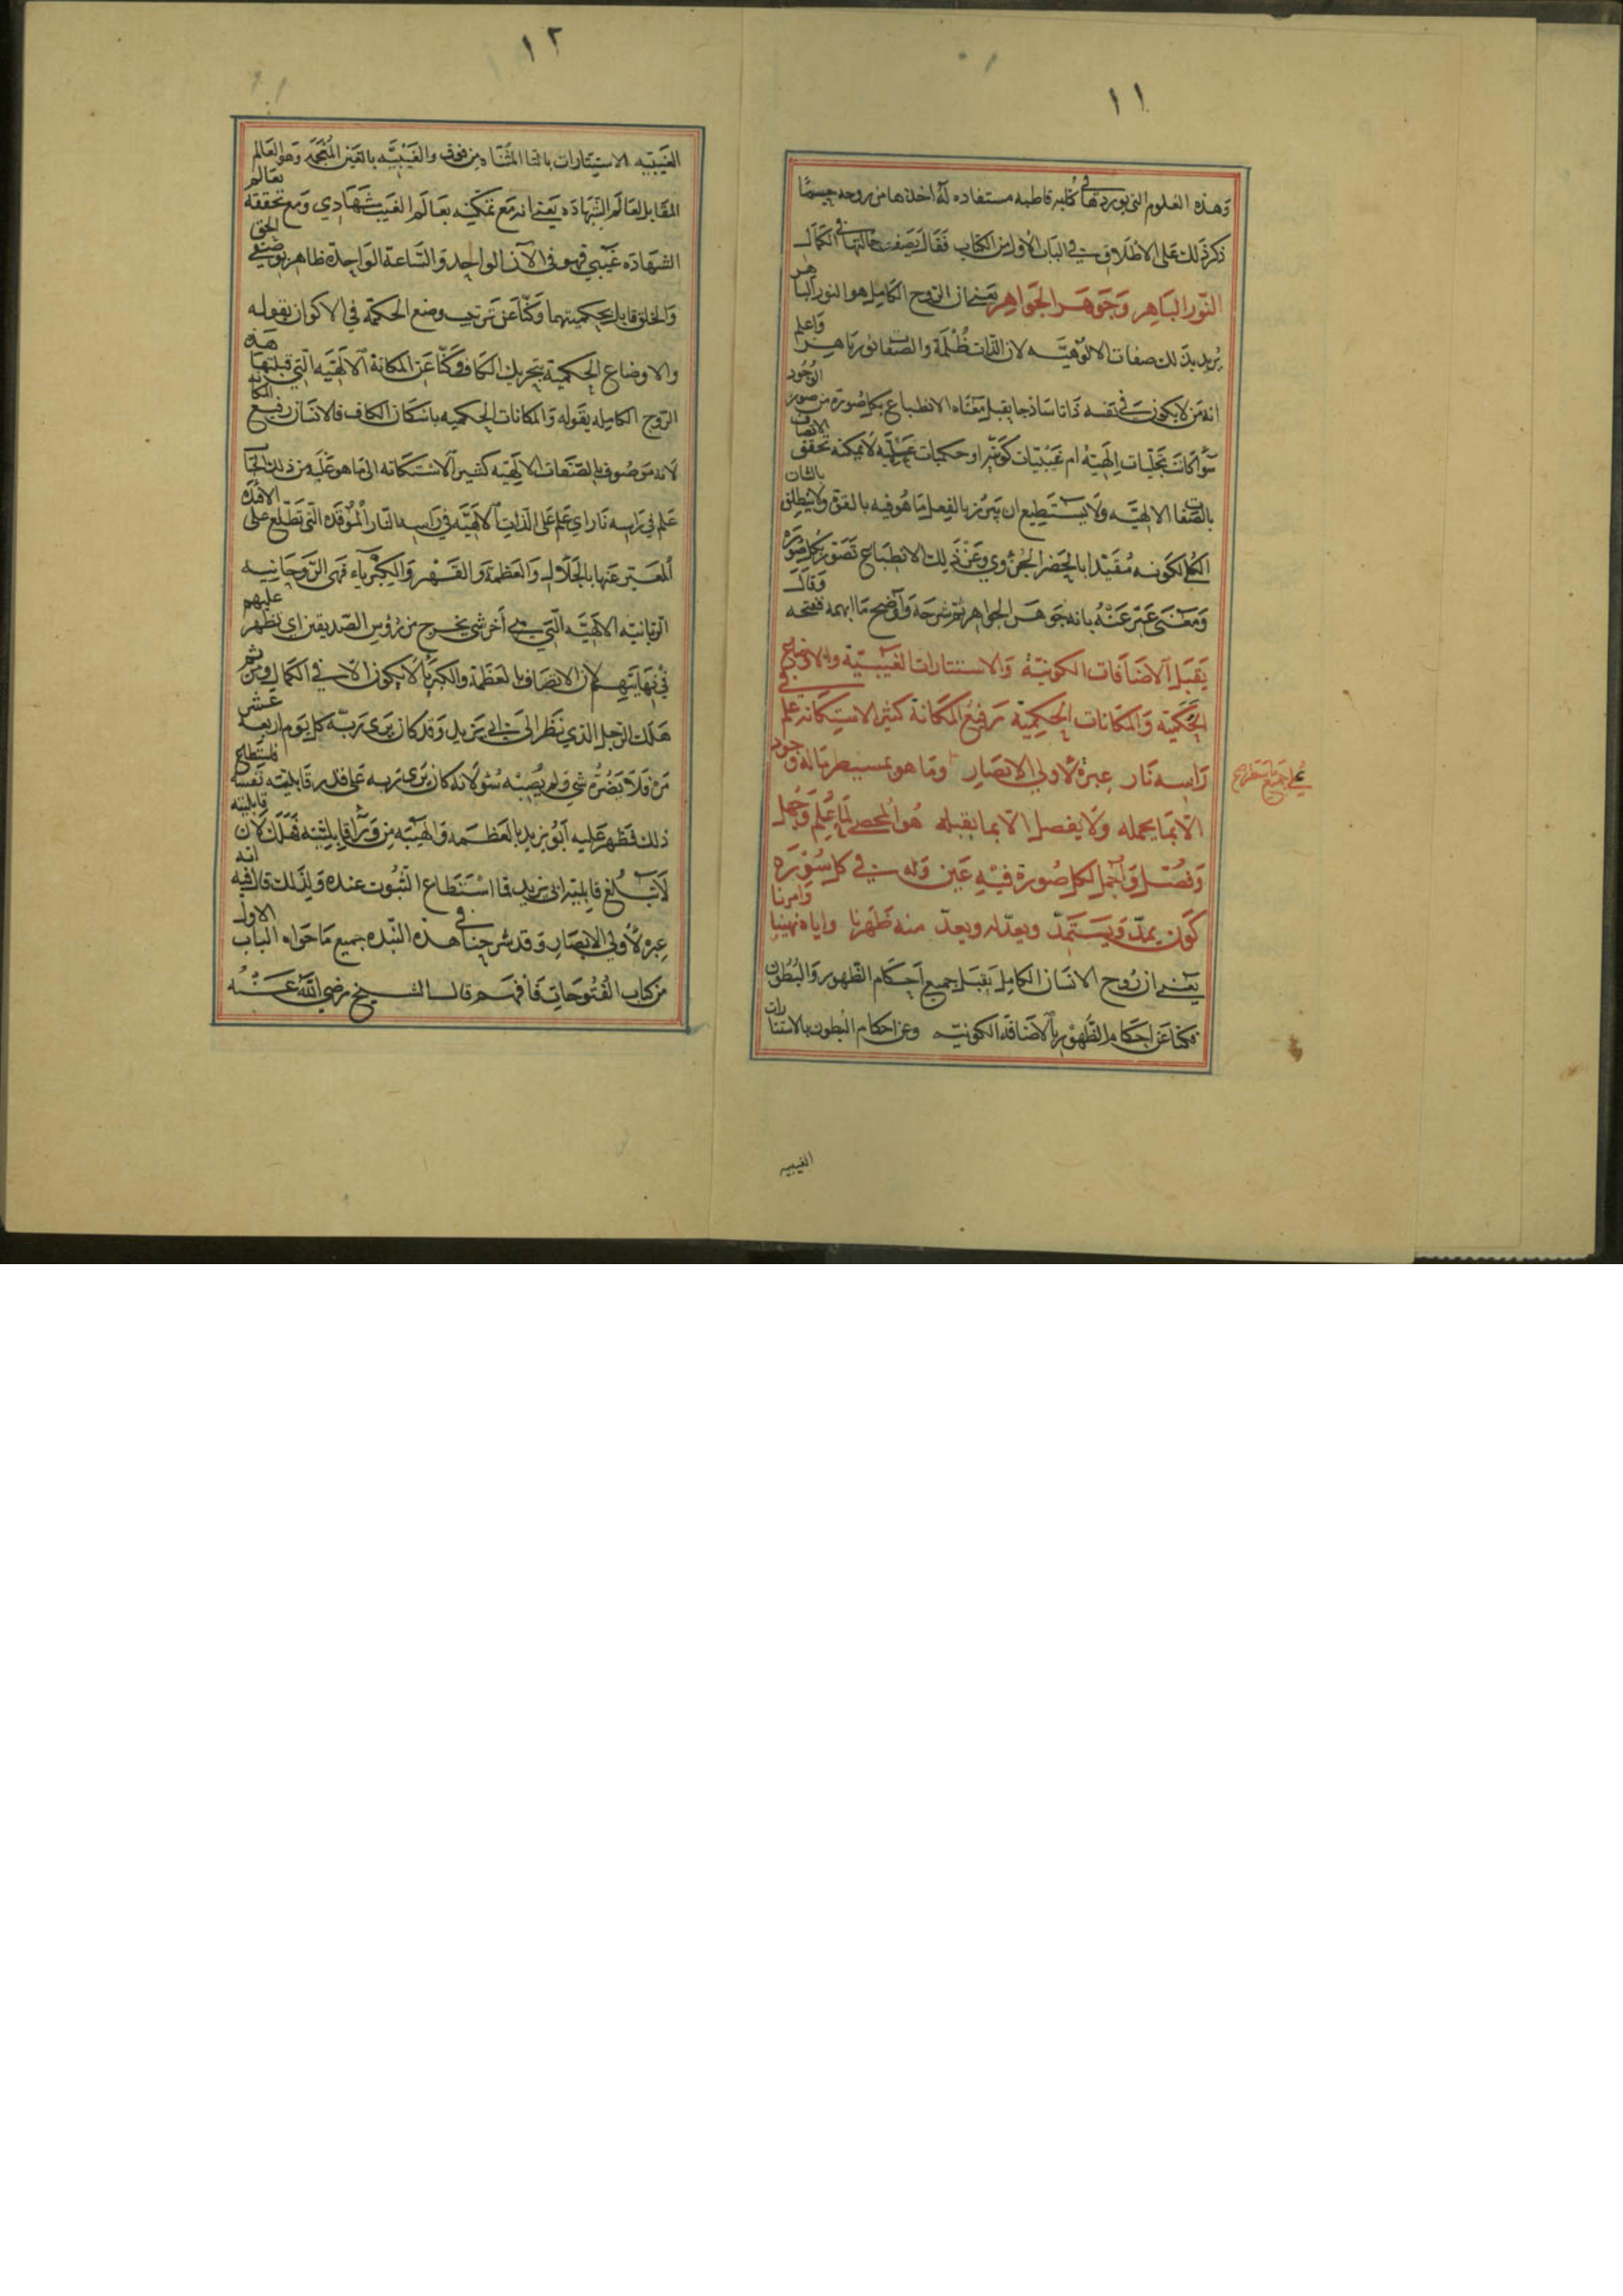 ١١
وهذه العلوم التي يوردها في كتبه قاطبة مستفاده له اخذها من روحه حيثما
ذكر ذلك على الاطلاق في الباب الأول من الكتاب فقال يصف حالتها في الكمال
النور الباهر وجوهر الجواهر يعني ان الروح الكامل هو النور الباهر
يريد بذلك صفات الالوهيه لان الذات ظلمة والصفات نور باهر واعلم
انه من لا يكون في نفسه ذاتا ساذجا يقبل معناه الانطباع بكل صورة من صور الوجود
سوا كانت تجليات الهية ام غيبيات كونية او حكميات لا يمكنه تحقق الاتصاف
بالصفات الالهيه ولا يستطيع ان يبرز بالفعل ما هو فيه بالقوة ولا ينطلق بالشان
الكلي لكونه مقيدا بالحصر الجزوي وعن ذلك الانطباع تصور بكل صورة
ومعنى عبر عنه بانه جوهر الجواهر ثم شرحه واوضح ما ابهمه فنتحه وقال
يقبل الاضافات الكونية والاستتارات الغيبيبة والاوضاع
الحكمية والمكانات الحكمية رفيع المكانة كثير الاستكانه علم في
راسه نار عبرة لاولي الابصار وما هو بمسيطر ماله وجود
الا بما يحمله ولا يفصل الا بما يقبله هو المحصي لما علم وجهل
وفصل واجمل لكل صورة فيه عين وله في كل سورة
كون يمد ويستمد ويعد له ويعد منه ظهرنا واياه نهينا وامرنا
يعني ان روح الانسان الكامل يقبل جميع احكام الظهور والبطون
فكنا عن احكام الظهور بالاضافه الكونيه وعن احكام البطون بالاستتارات
الغيبيه
١٢
الغيبيه الاستتارات بالتا المثناه من فوق والغيبيه بالغين المعجمه وهو العالم
المقابل لعالم الشهاده يعني انه مع تمكينه بعالم الغيب شهادي ومع تحققه بعالم
الشهاده غيبي فهو في الان الواحد والساعة الواحدة ظاهر بوضعي الحق
والخلق قابل بحكميتهما وكنا عن ترتيب وضع الحكمة في الاكوان بقوله
والاوضاع الحكمية بتحريك الكاف وكنا عن المكانة الالهيه التي قبلتها هذه
الروح الكامله بقوله والمكانات الحكميه باسكان الكاف فالانسان رفيع المكانه
لانه موصوف بالصفات الالهيه كثير الاستكانه الى ما هو عليه من ذلك
علم في راسه نار اي علم على الذات الالهيه في راسه النار الموقده التي تطلع على الافئده
المعبر عنها بالجلال والعظمة والقهر والكبرياء فهي الروحانيه
الربانيه الالهيه التي هي اخر شي يخرج من رؤس الصديقين اي تظهر عليهم
في نهايتهم لان الاتصاف بالعظمة والكبريا لا يكون الا في الكمال ومن ثم
هلك الرجل الذي نظر الى ابي يزيد وقد كان يرى ربه كل يوم اربعة عشر
مره فلا يضره شي ولم يصبه سو لانه كان يرى ربه على قدر قابليته نفسه فاستطاع
ذلك فظهر عليه ابو يزيد بالعظمه والهيبه من ورا قابليته فهلك لان قابليته
لا تبلغ قابلية ابي يزيد فما استطاع الثبوت عنده ولذلك قال فيه انه
عبره لاولي الابصار وقد شرحنا في هذه النبذه جميع ما حواه الباب الاول
من كتاب الفتوحات فافهم قال الشيخ رضي الله عنه